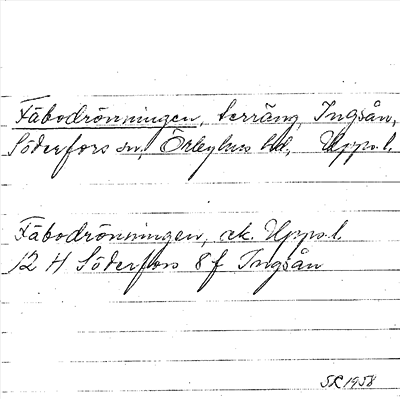 Fäbodrönningen, terräng, Ingsån,
Söderfors sn, Örbyhus hd, Upps.l.
Fäbodrönningen, ek. Upps.l.
12 H Söderfors 8 f Ingsån
SR 1958